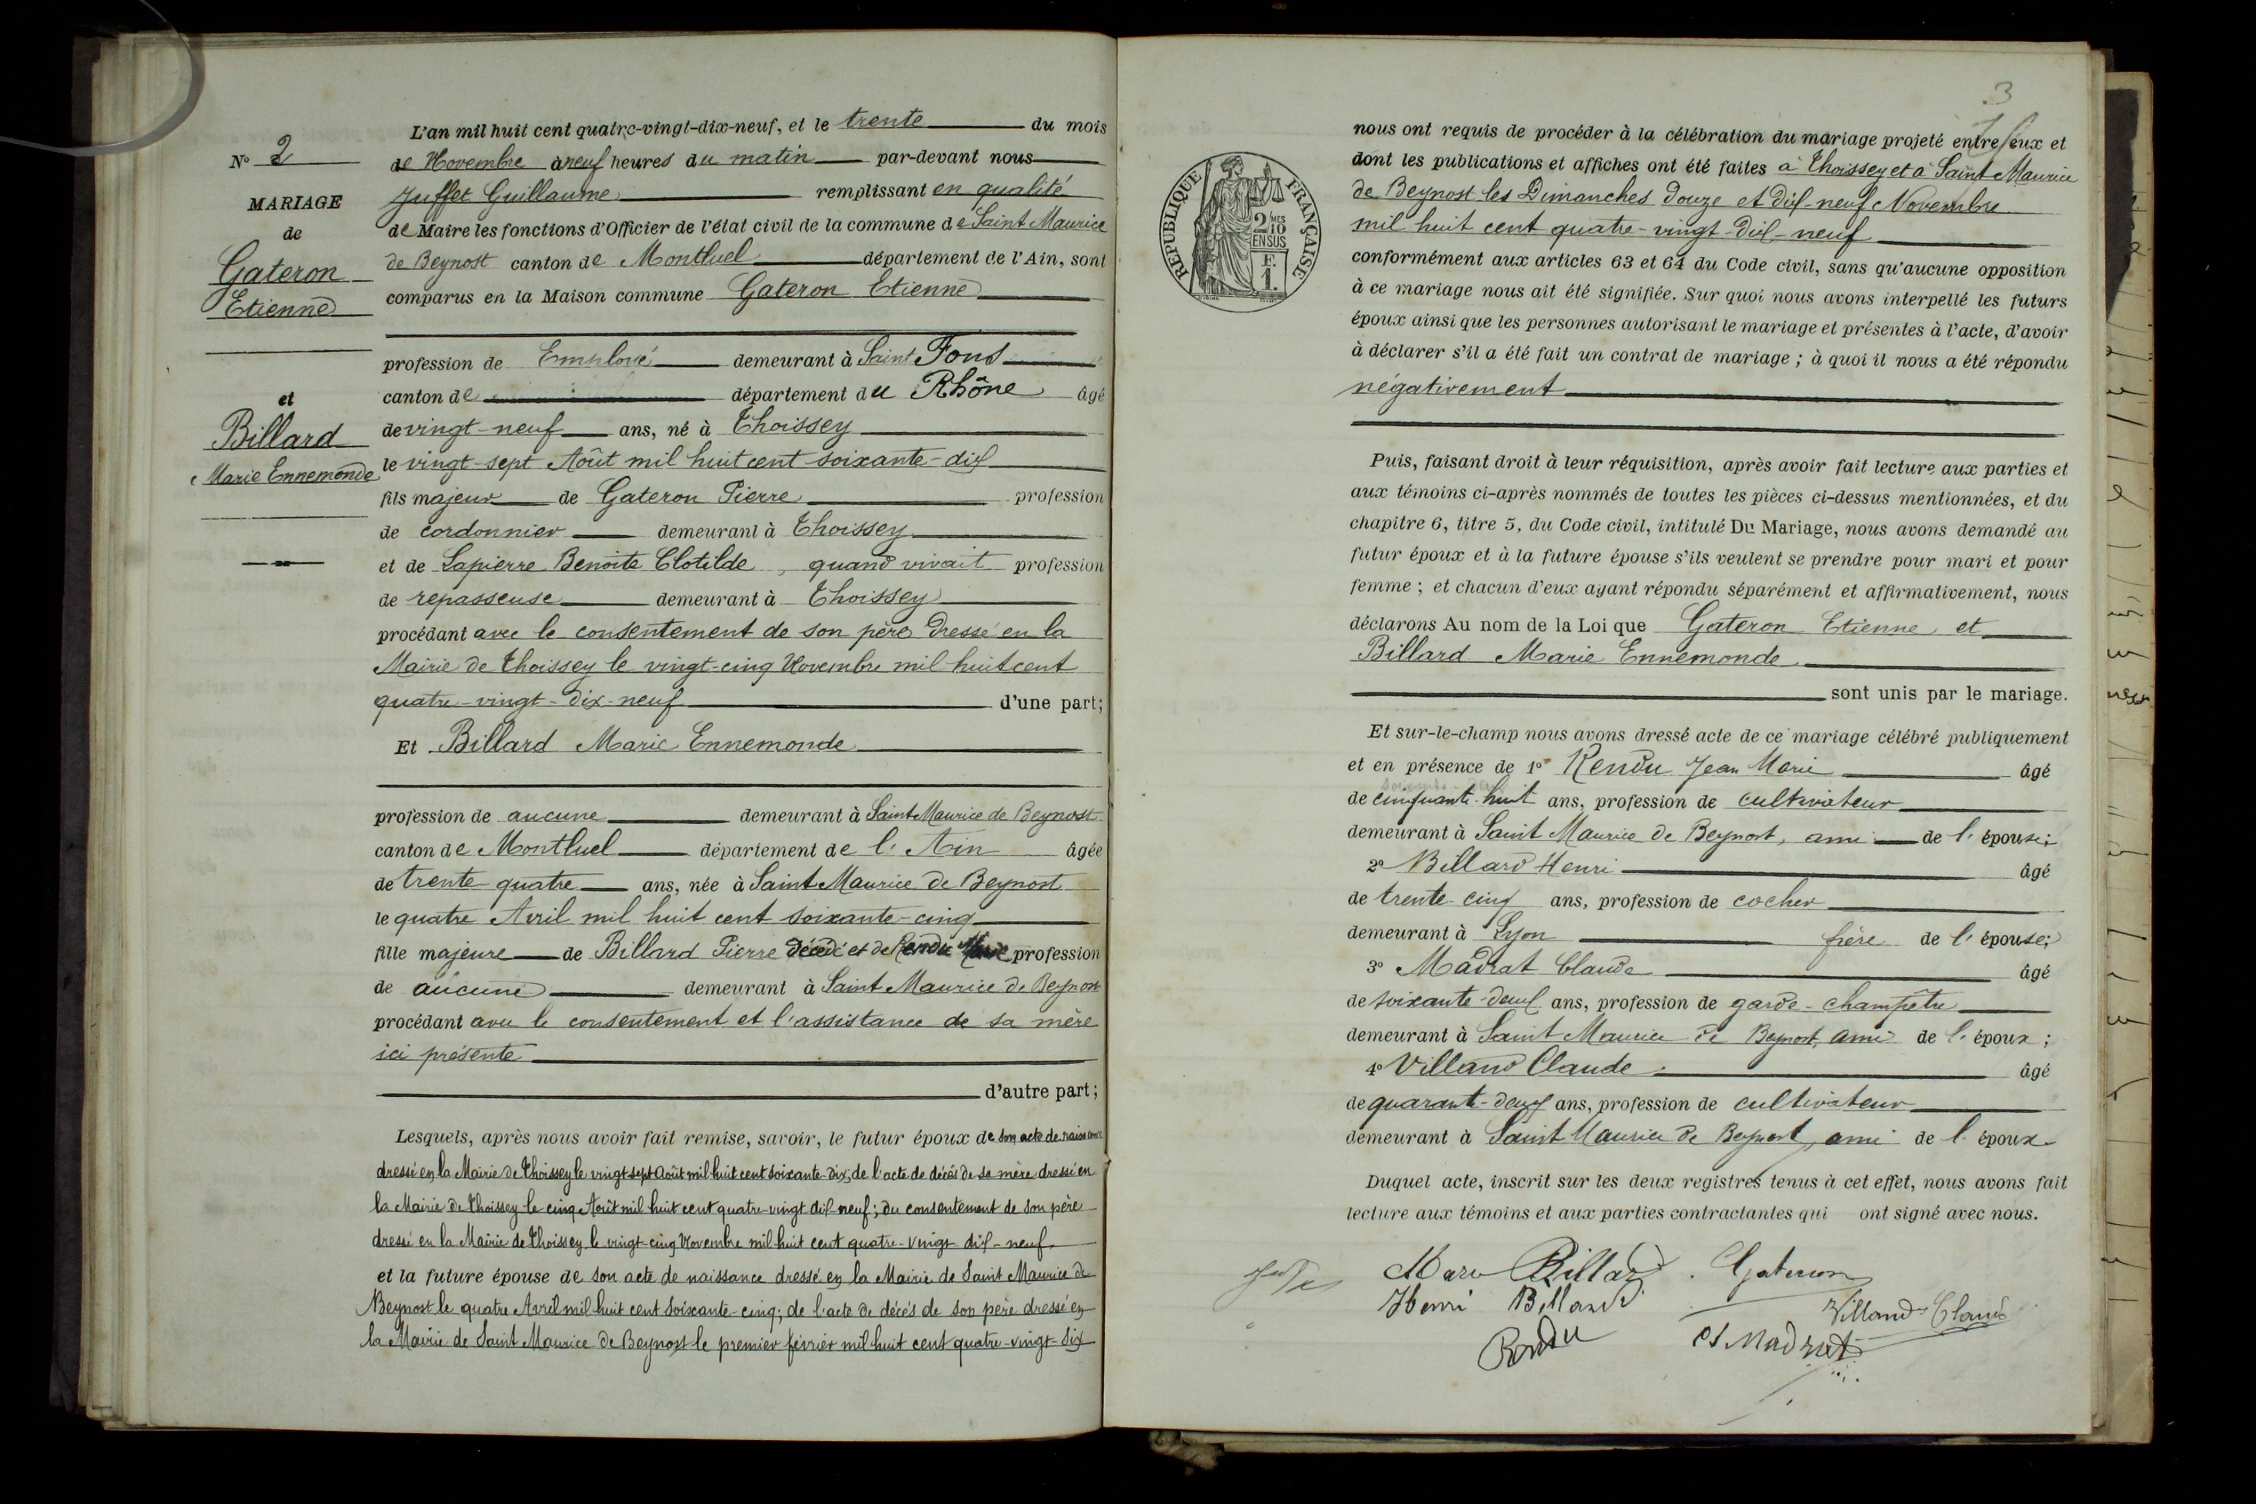 L'an mil huit cent quatre-vingt-dix-neuf, et le trente du mois
de Novembre à neuf heures du matin par-devant nous
Juffet Guillaume remplissant en qualité
de Maire les fonctions d'Officier de l'état civil de la commune de Saint Maurice
de Beynost canton de Montluel département de l'Ain, sont
comparus en la Maison commune Gateron Etienne
profession de Employé demeurant à Saint Fons
canton de département du Rhône âgé
de vingt-neuf ans, né à Thoissey
le vingt-sept Août mil huit cent soixante-dix
fils majeur de Gateron Pierre profession
de cordonnier demeurant à Thoissey
et de Lapierre Benoite Clotilde, quand vivait profession
de repasseuse demeurant à Thoissey
procédant avec le consentement de son père dressé en la
Mairie de Thoissey le vingt-cinq Novembre mil huit cent
quatre-vingt-dix-neuf d'une part;
Et Billard Marie Ennemonde
profession de aucune demeurant à Saint Maurice de Beynost
canton de Montluel département de l'Ain âgée
de trente quatre ans, née à Saint Maurice de Beynost
le quatre Avril mil huit cent soixante-cinq
fille majeure de Billard Pierre décédé et de Rendu Marie profession
de aucune demeurant à Saint Maurice de Beynost
procédant avec le consentement et l'assistance de sa mère
ici présente
d'autre part;
Lesquels, après nous avoir fait remise, savoir, le futur époux de son acte de naissance
dressé en la Mairie de Thoissey le vingt sept Août mil huit cent soixante-dix, de l'acte de décès de sa mère dressé en
la Mairie de Thoissey le cinq Août mil huit cent quatre-vingt dix neuf; du consentement de son père
dressé en la Mairie de Thoissey le vingt-cinq Novembre mil huit cent quatre-vingt dix-neuf
et la future épouse de son acte de naissance dressé en la Mairie de Saint Maurice de
Beynost le quatre Avril mil huit cent soixante-cinq; de l'acte de décès de son père dressé en
la Mairie de Saint Maurice de Beynost le premier février mil huit cent quatre-vingt-six
No 2
MARIAGE
de
Gateron
Etienne
et
Billard
Marie Ennemonde
3
RÉPUBLIQUE FRANÇAISE
2 MES
10
EN SUS
F.
1.
nous ont requis de procéder à la célébration du mariage projeté entre eux et
dont les publications et affiches ont été faites à Thoissey et à Saint Maurice
de Beynost les Dimanches douze et dix-neuf Novembre
mil huit cent quatre-vingt-dix-neuf
conformément aux articles 63 et 64 du Code civil, sans qu'aucune opposition
à ce mariage nous ait été signifiée. Sur quoi nous avons interpellé les futurs
époux ainsi que les personnes autorisant le mariage et présentes à l'acte, d'avoir
à déclarer s'il a été fait un contrat de mariage; à quoi il nous a été répondu
négativement
Puis, faisant droit à leur réquisition, après avoir fait lecture aux parties et
aux témoins ci-après nommés de toutes les pièces ci-dessus mentionnées, et du
chapitre 6, titre 5, du Code civil, intitulé Du Mariage, nous avons demandé au
futur époux et à la future épouse s'ils veulent se prendre pour mari et pour
femme; et chacun d'eux ayant répondu séparément et affirmativement, nous
déclarons Au nom de la Loi que Gateron Etienne et
Billard Marie Ennemonde
sont unis par le mariage.
Et sur-le-champ nous avons dressé acte de ce mariage célébré publiquement
et en présence de 1o Rendu Jean Marie âgé
de cinquante-huit ans, profession de cultivateur
demeurant à Saint Maurice de Beynost, ami de l'épouse;
2o Billard Henri âgé
de trente-cinq ans, profession de cocher
demeurant à Lyon frère de l'épouse;
3o Madrat Claude âgé
de soixante-deux ans, profession de garde-champêtre
demeurant à Saint Maurice de Beynost, ami de l'époux;
4o Villand Claude âgé
de quarante-deux ans, profession de cultivateur
demeurant à Saint Maurice de Beynost, ami de l'époux
Duquel acte, inscrit sur les deux registres tenus à cet effet, nous avons fait
lecture aux témoins et aux parties contractantes qui ont signé avec nous.
Billard Gateron
Henri Billard Villand Claude
Rendu Cl Madrat